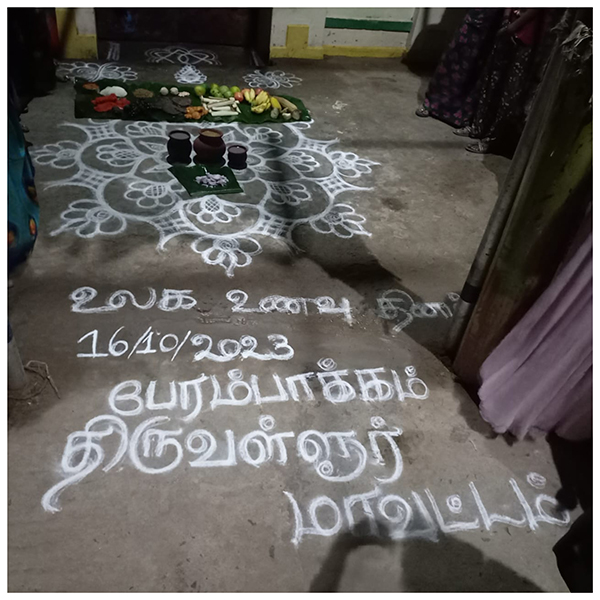 உலக உணவு தினம்
16/10/2023
பேரம்பாக்கம்
திருவள்ளூர்
மாவட்டம்